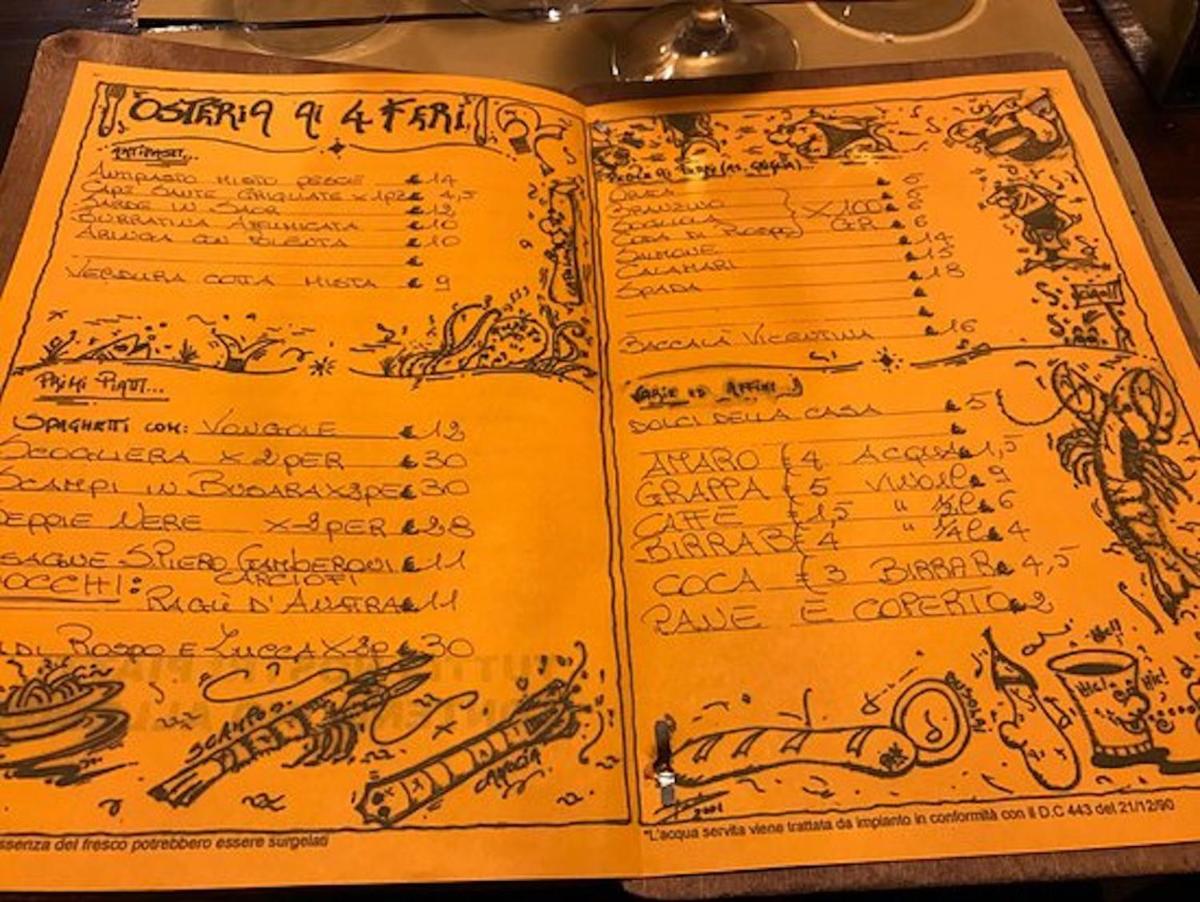 OSTERIA AI 4 FERI
ANTIPASTI...
ANTIPASTO MISTO PESCE € 14
CAPE SANTE GRIGLIATE x 1PZ € 4,5
SARDE IN SAOR € 12
BURRATINA AFFUMICATA € 10
ARINGA CON POLENTA € 10
€
VERDURA COTTA MISTA € 9
PRIMI PIATTI...
SPAGHETTI CON: VONGOLE € 12
SCOGLIERA x 2 PER € 30
SCAMPI IN BUSARA x 2 PE € 30
SEPPIE NERE x 2 PER € 28
SAGNE S.PIERO GAMBERONI € 11
CARCIOFI
OCCHI: RAGÙ D'ANATRA € 11
DI ROSPO E ZUCCA x 2P € 30
SCAMPO
ORATA € 5
BRANZINO € 6
SOGLIOLA x 100 GR € 6
CODA DI ROSPO
SALMONE € 14
CALAMARI € 15
SPADA € 18
€
€
BACCALÀ VICENTINA € 16
CIAO!!
VARIE ED AFFINI...
DOLCI DELLA CASA € 5
€
AMARO € 4 ACQUA 1,5
GRAPPA € 5 VINO 1l € 9
CAFFE € 1,5 " 1/2 l € 6
BIRRA B € 4 " 1/4 l € 4
COCA € 3 BIRRA R € 4,5
PANE E COPERTO € 2
HIC!!
HIC! HIC!
PAX
2001
ssenza del fresco potrebbero essere surgelati
*L'acqua servita viene trattata da impianto in conformità con il D.C 443 del 21/12/90